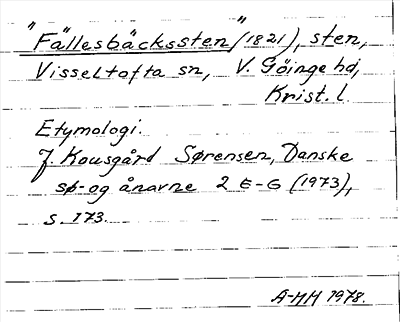 "Fällesbäckssten"(1821), sten,
Visseltofta sn, V. Göinge hd,
Krist. l.
Etymologi.
J. Kousgård Sørensen, Danske
sø- og ånavne 2 E-G (1973),
s. 173.
A-MH 1978.